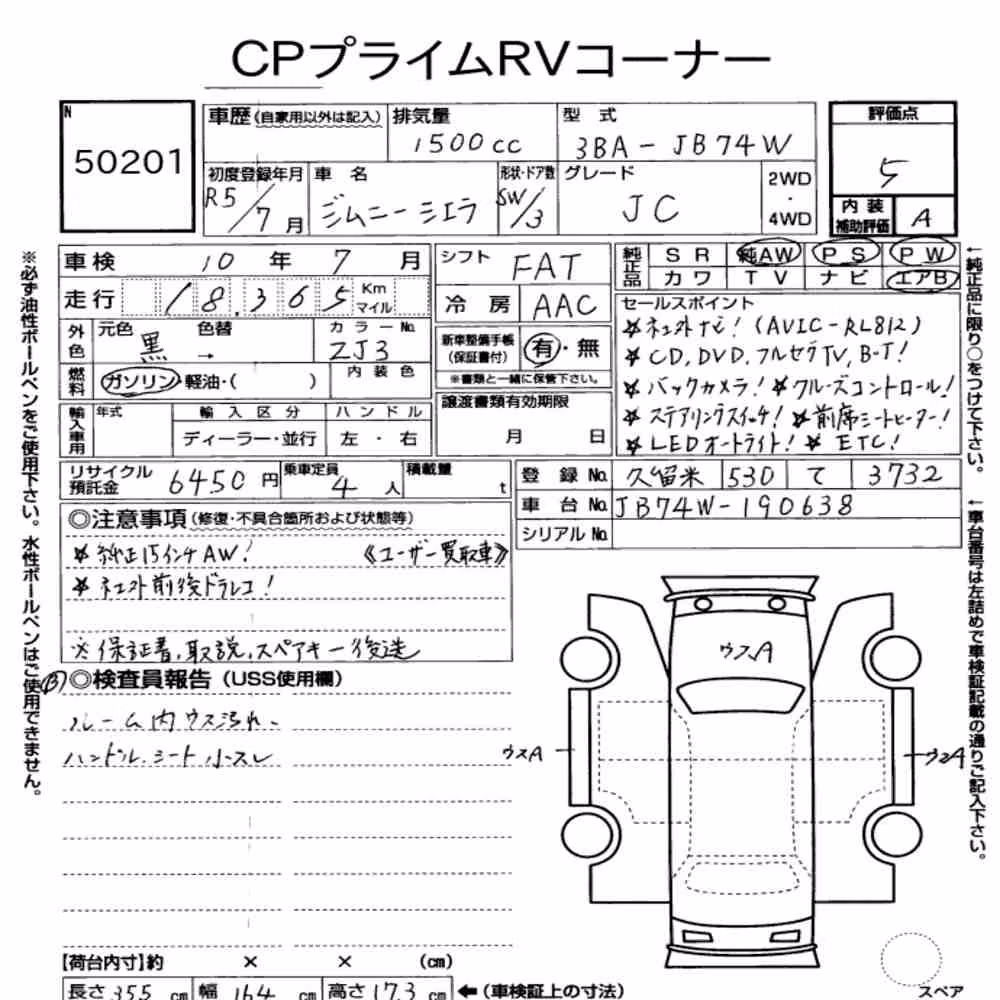 CPプライムRVコーナー
N
50201
車歴(自家用以外は記入)
排気量
1500cc
型式
3BA-JB74W
評価点
5
内装補助評価
A
初度登録年月
R5/7月
車名
ジムニーシエラ
形状・ドア数
SW/3
グレード
JC
2WD・4WD
車検 10年 7月
走行 18,365 Km マイル
外色
元色 黒
色替 →
カラーNo.
ZJ3
燃料
ガソリン・軽油・( )
内装色
輸入車用
年式
輸入区分
ディーラー・並行
ハンドル
左・右
シフト FAT
冷房 AAC
新車整備手帳(保証書付)
有・無
※書類と一緒に保管下さい。
譲渡書類有効期限
月 日
純正品
SR 純AW PS PW
カワ TV ナビ エアB
セールスポイント
☆社外ナビ!(AVIC-RL812)
☆CD,DVD,フルセグTV,B-T!
☆バックカメラ!☆クルーズコントロール!
☆ステアリングスイッチ!☆前席シートヒーター!
☆LEDオートライト!☆ETC!
リサイクル預託金 6450円
乗車定員 4人
積載量 t
登録No. 久留米 530 て 3732
車台No. JB74W-190638
シリアルNo.
◎注意事項(修復・不具合箇所および状態等)
☆純正15インチAW! 《ユーザー買取車》
☆社外前後ドラレコ!
※保証書,取説,スペアキー後送
◎検査員報告(USS使用欄)
ルーム内ウス汚れ、
ハンドル、シート小スレ
ウスA
ウスA
ウスA
【荷台内寸】約 × × (cm)
長さ355cm 幅164cm 高さ173cm ←(車検証上の寸法)
スペア
※必ず油性ボールペンをご使用下さい。水性ボールペンはご使用できません。
←純正品に限り○をつけて下さい。
←車台番号は左詰めで車検証記載の通りご記入下さい。